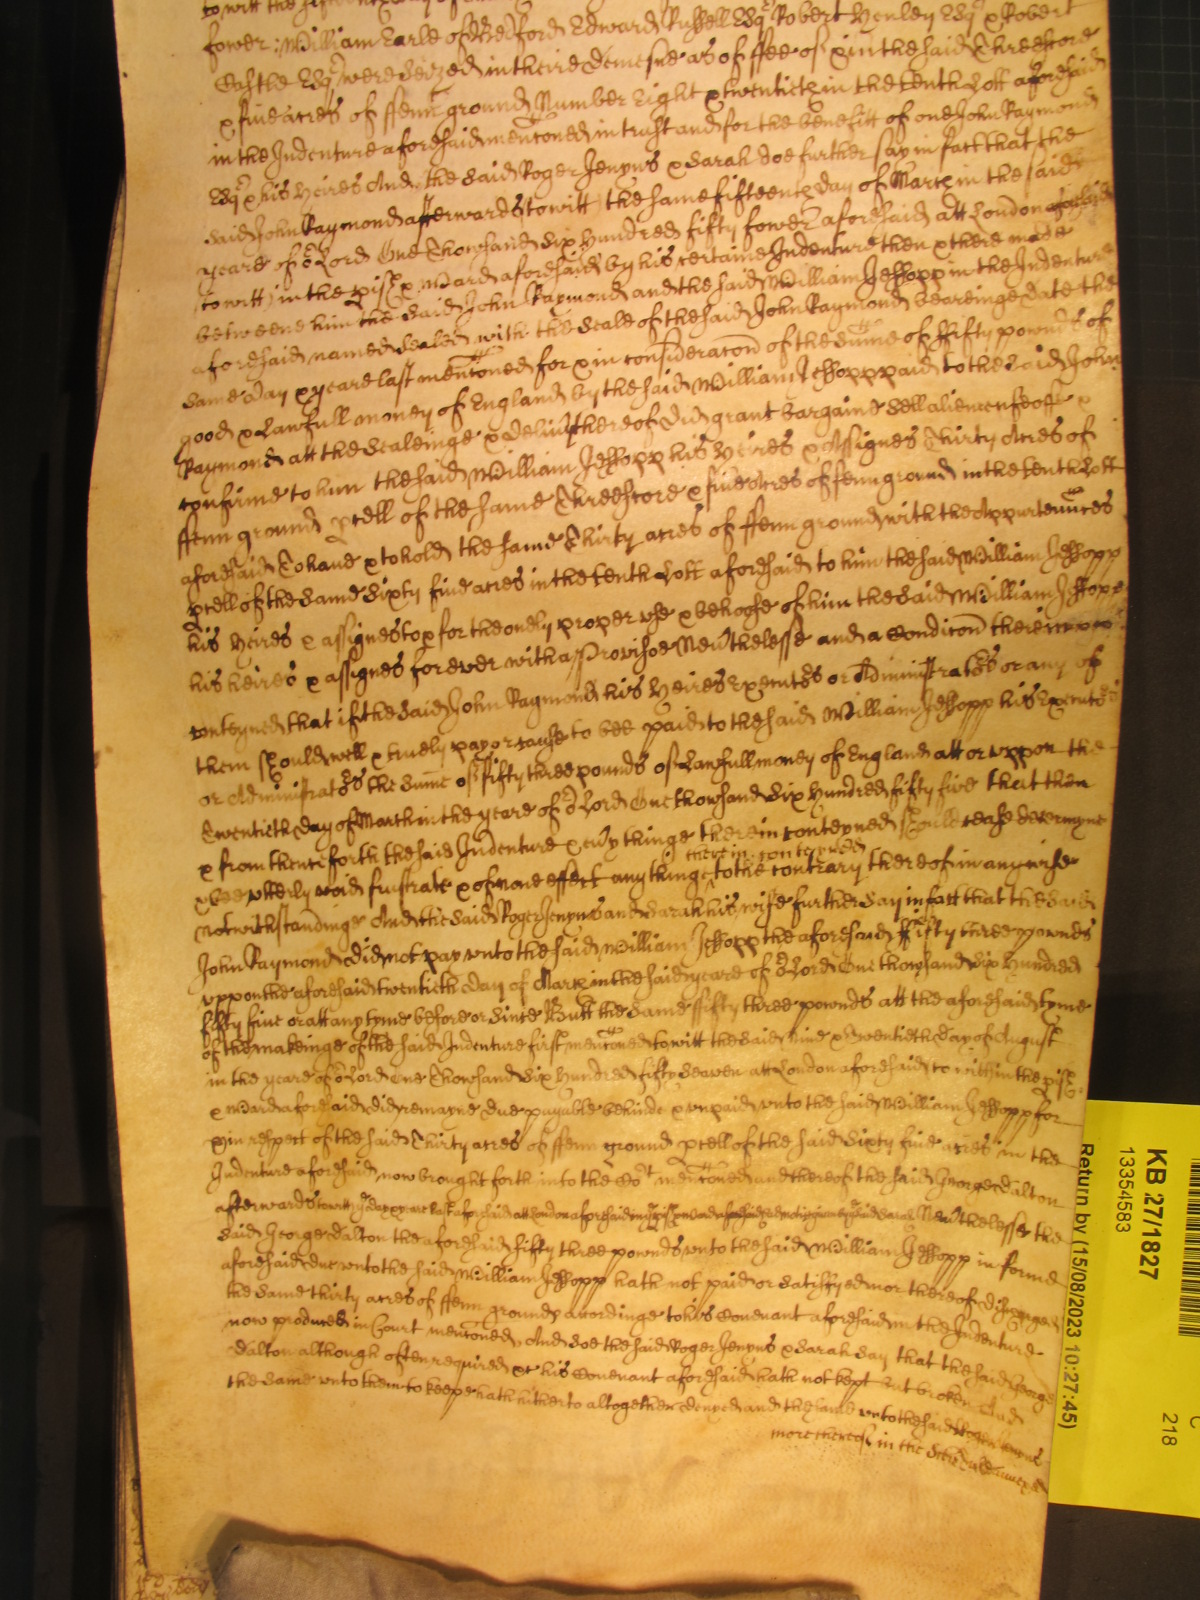 to witt the fifteenth
fower William Earle of Bedford Edward Russell Esqr Robert Henley Esqr x Robert
Castle Esqr were seized in theire demesne as of ffee of x in the said Threescore
x five acres of ffenn ground Number Eight x twentieth in the tenth Lott aforesaid
in the Indenture aforesaid menconed in trust and for the benefitt of one John Raymond
Esqr x his heires And the said Roger Jenyns x Sarah doe further say in fact that the
said John Raymond afterwards to witt the same fifteenth day of March in the said
yeare of or Lord One Thowsand Six hundred fifty fower aforesaid att London aforesaid
to witt in the pish x Ward aforesaid by his certaine Indenture then x there made
betweene him the said John Raymond and the said William Jessopp in the Indenture
aforesaid named sealed with the seale of the said John Raymond beareinge date the
same day x yeare last menconed for x in consideracon of the sume of ffifty pownds of
good x lawfull money of England by the said William Jessopp paid to the said John
Raymond att the sealeinge x deliuy thereof did grant bargaine sell alien enfeoffe x
confirme to him the said William Jessopp his heires x Assignes Thirty Acres of
ffenn ground pcell of the same Threescore x five Acres of ffenn ground in the tenth Lott
aforesaid To have x to hold the same Thirty acres of ffenn ground with the Appurtenances
pcell of the same Sixty five acres in the tenth Lott aforesaid to him the said William Jessopp
his heires x assignes to x for the onely proper use x behoofe of him the said William Jessopp
his heires x assignes forever with a Provisoe Neu'thelesse and a Condicon therein
conteyned that if the said John Raymond his heires Executors or Administrators or any of
them should well x truely pay or cause to bee paid to the said William Jessopp his Executors
or Administrators the sume of ffifty three pounds of lawfull money of England att or uppon the
Twentieth day of March in the yeare of or Lord One thowsand Six hundred fifty five that then
x from thenceforth the said Indenture x eu'y thinge therein conteyned should cease determyne
therein conteyned
x bee utterly void frustrate x of none effect any thinge to the contrary thereof in anywise
notwithstandinge And the said Roger Jenyns and Sarah his wife further say in fact that the said
John Raymond did not pay unto the said William Jessopp the aforesaid ffifty three pownds
uppon the aforesaid twentieth day of March in the said yeare of or Lord One thowsand Six hundred
fifty five or att any tyme before or since But the same ffifty three pownds att the aforesaid tyme
of the makeinge of the said Indenture first menconed to witt the said Nine x Twentieth day of August
in the yeare of or Lord One Thowsand Six hundred fifty Seaven att London aforesaid to witt in the pish
x Ward aforesaid did remayne due payable behinde x unpaid unto the said William Jessopp for
x in respect of the said Thirty acres of ffenn ground pcell of the said Sixty five acres in the
Indenture aforesaid now brought forth into the Cort menconed and thereof the said George Dalton
afterwards to witt x yeare last aforesaid att London aforesaid in x Ward aforesaid had notice Neu'thelesse the
said George Dalton the aforesaid fifty three pownds unto the said William Jessopp in forme
aforesaid due unto the said William Jessopp hath not paid or satisfyed nor thereof discharged
the same thirty acres of ffenn ground accordinge to his Covenant aforesaid in the Indenture
now produced in Court menconed And Soe the said Roger Jenyns x Sarah say that the said George
Dalton although often required xc his Covenant aforesaid hath not kept but broken And
the same unto them to keepe hath hitherto altogether denyed and the same unto the said Roger Jenyns
more thereof in the
Return by (15/08/2023 10:27:45)
13354583
KB 27/1827
218
C